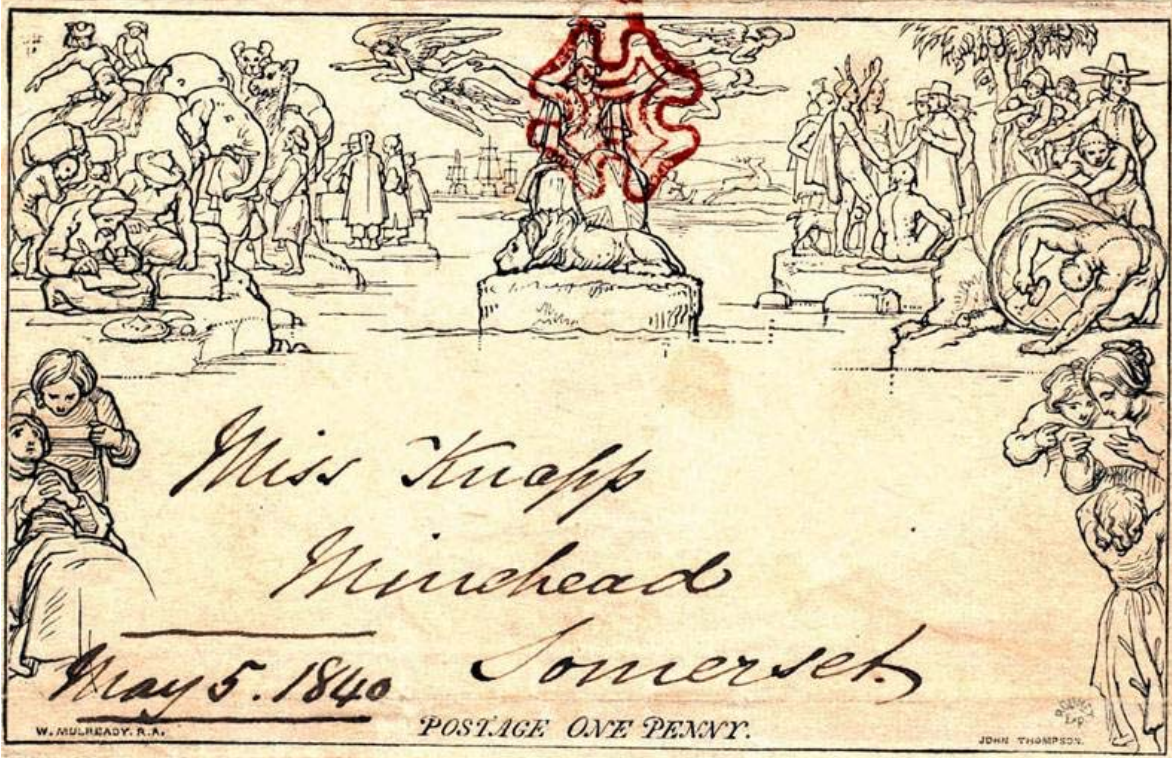 Miss Knapp
Minehead
Somerset.
May 5. 1840
W. MULREADY. R.A.
POSTAGE ONE PENNY.
JOHN THOMPSON.